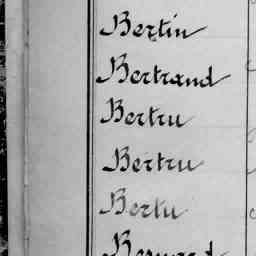 Bertin
Bertrand
Bertru
Bertru
Bertu